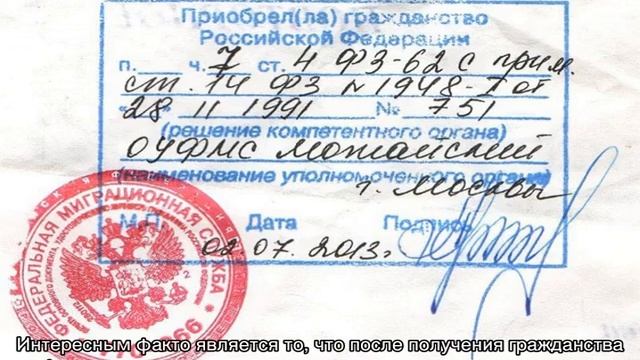 Приобрел(ла) гражданство
Российской Федерации
п. ч. 7 ст. 4 ФЗ-62 с прим.
ст. 14 ФЗ N 1948-I от
"28" 11 1991 № 751
(решение компетентного органа)
ОУФМС Можайский
(наименование уполномоченного органа)
г. Москвы
М.П. Дата Подпись
02.07.2013г.
ФЕДЕРАЛЬНАЯ МИГРАЦИОННАЯ СЛУЖБА
Интересным факто является то, что после получения гражданства